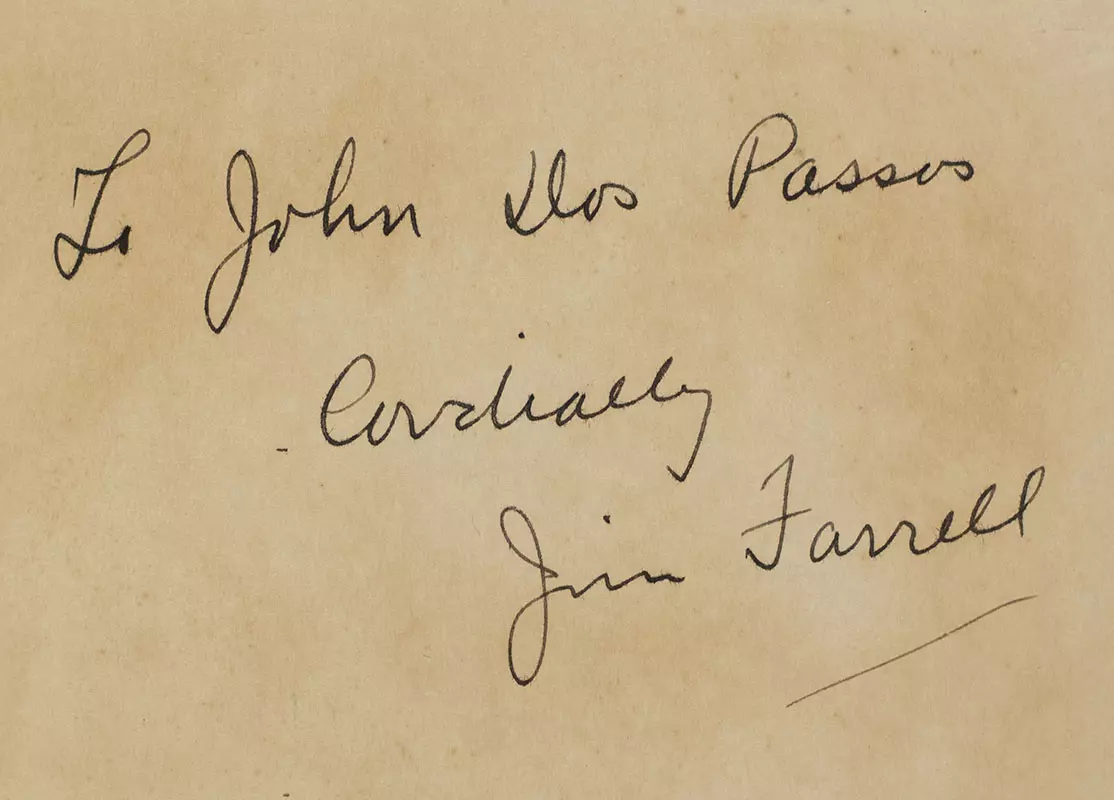 To John Dos Passos
Cordially
Jim Farrell